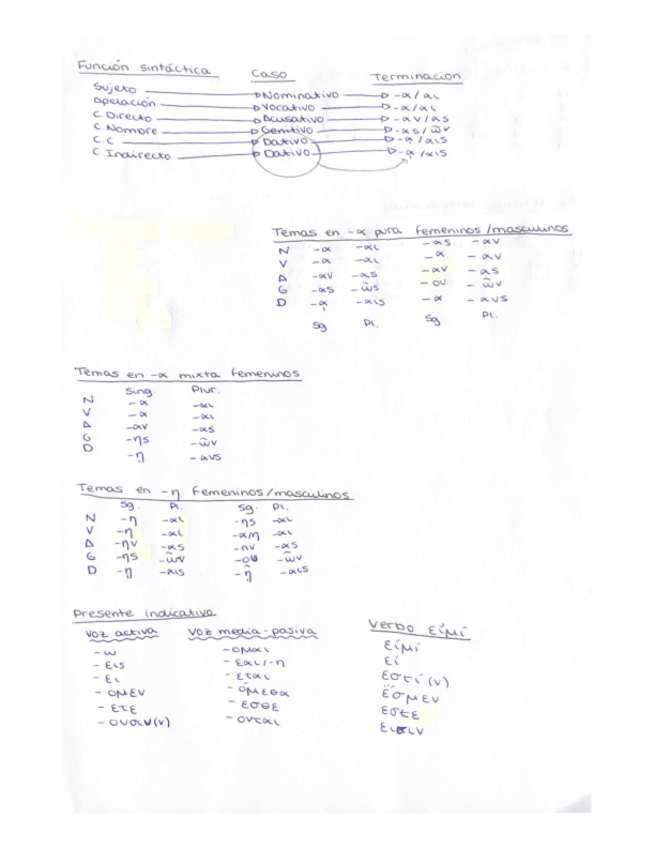 Función sintáctica Caso Terminacion
Sujeto Nominativo -α/αι
Apelación Vocativo -α/αι
C. Directo Acusativo -αν/ας
C. Nombre Genitivo -ας/ω̃ν
C.C Dativo -ᾳ/αις
C. Indirecto Dativo -ᾳ/αις
Temas en -α pura femeninos/masculinos
N -α -αι -ας -αν
V -α -αι -α -αν
A -αν -ας -αν -ας
G -ας -ω̃ς -ου -ω̃ν
D -ᾳ -αις -α -ανς
Sg Pl. Sg Pl.
Temas en -α mixta femeninos
Sing. Plur.
N -α -αι
V -α -αι
A -αν -ας
G -ης -ω̃ν
D -ῃ -ανς
Temas en -η femeninos/masculinos
Sg. Pl. Sg. Pl.
N -η -αι -ης -αι
V -η -αι -α/η -αι
A -ην -ας -ην -ας
G -ης -ω̃ν -ου -ω̃ν
D -ῃ -αις -ῃ -αις
Presente indicativo
Voz activa Voz media-pasiva
-ω -ομαι
-εις -εαι/-η
-ει -εται
-ομεν -όμεθα
-ετε -εσθε
-ουσιν(ν) -ονται
Verbo εἰμί
εἰμί
εἰ
εστί(ν)
ἐσμεν
εστε
εισιν